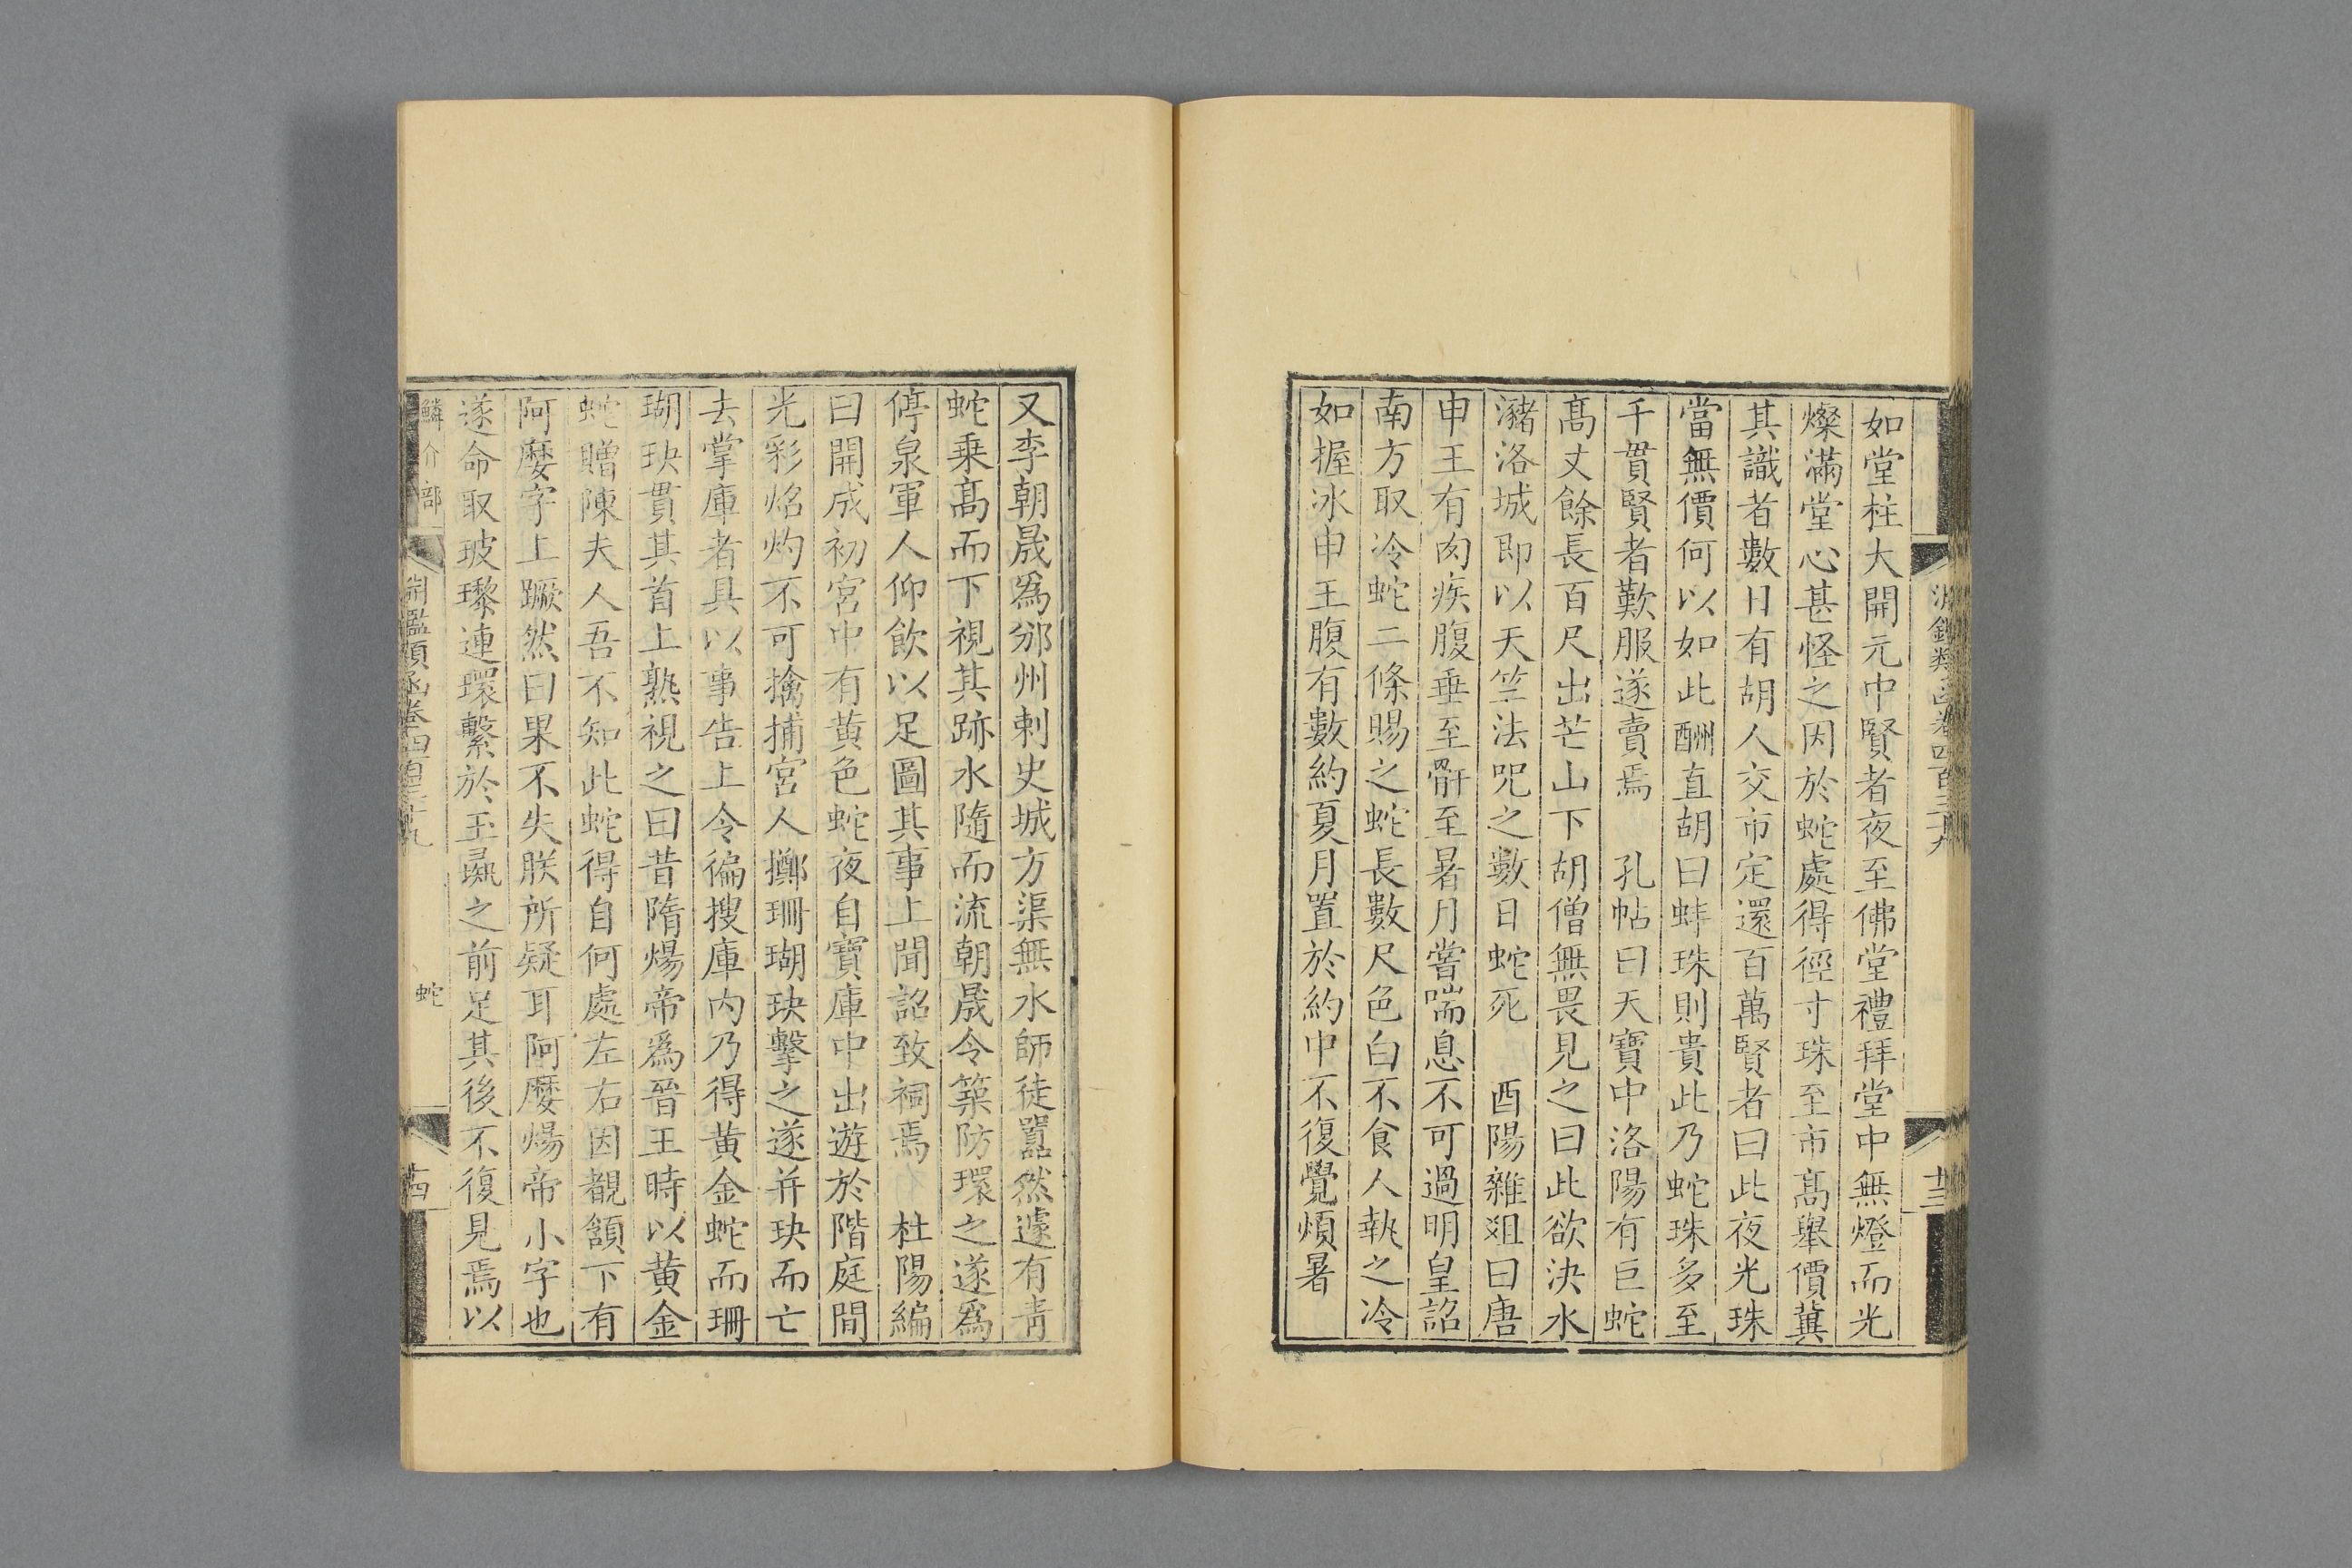 淵鑑類函卷四百三十九
十三
如堂柱大開元中賢者夜至佛堂禮拜堂中無燈而光
燦滿堂心甚怪之因於蛇處得徑寸珠至市高舉價冀
其識者數日有胡人交市定還百萬賢者曰此夜光珠
當無價何以如此酬直胡曰蚌珠則貴此乃蛇珠多至
千貫賢者歎服遂賣焉　孔帖曰天寶中洛陽有巨蛇
髙丈餘長百尺出芒山下胡僧無畏見之曰此欲決水
瀦洛城即以天竺法呪之數日蛇死　酉陽雜俎曰唐
申王有肉疾腹垂至骭至暑月嘗喘息不可過明皇詔
南方取冷蛇二條賜之蛇長數尺色白不食人執之冷
如握冰申王腹有數約夏月置於約中不復覺煩暑
又李朝晟爲邠州刺史城方渠無水師徒囂然遽有靑
蛇乗髙而下視其跡水隨而流朝晟令築防環之遂爲
停泉軍人仰飲以足圖其事上聞詔致祠焉　杜陽編
曰開成初宮中有黄色蛇夜自寶庫中出遊於階庭間
光彩焰灼不可擒捕宮人擲珊瑚玦擊之遂并玦而亡
去掌庫者具以事告上令徧搜庫内乃得黄金蛇而珊
瑚玦貫其首上熟視之曰昔隋煬帝爲晉王時以黄金
蛇贈陳夫人吾不知此蛇得自何處左右因覩頷下有
阿麼字上蹶然曰果不失朕所疑耳阿麼煬帝小字也
遂命取玻瓈連環繫於玉彘之前足其後不復見焉以
鱗介部
淵鑑類函卷四百三十九
蛇
十四